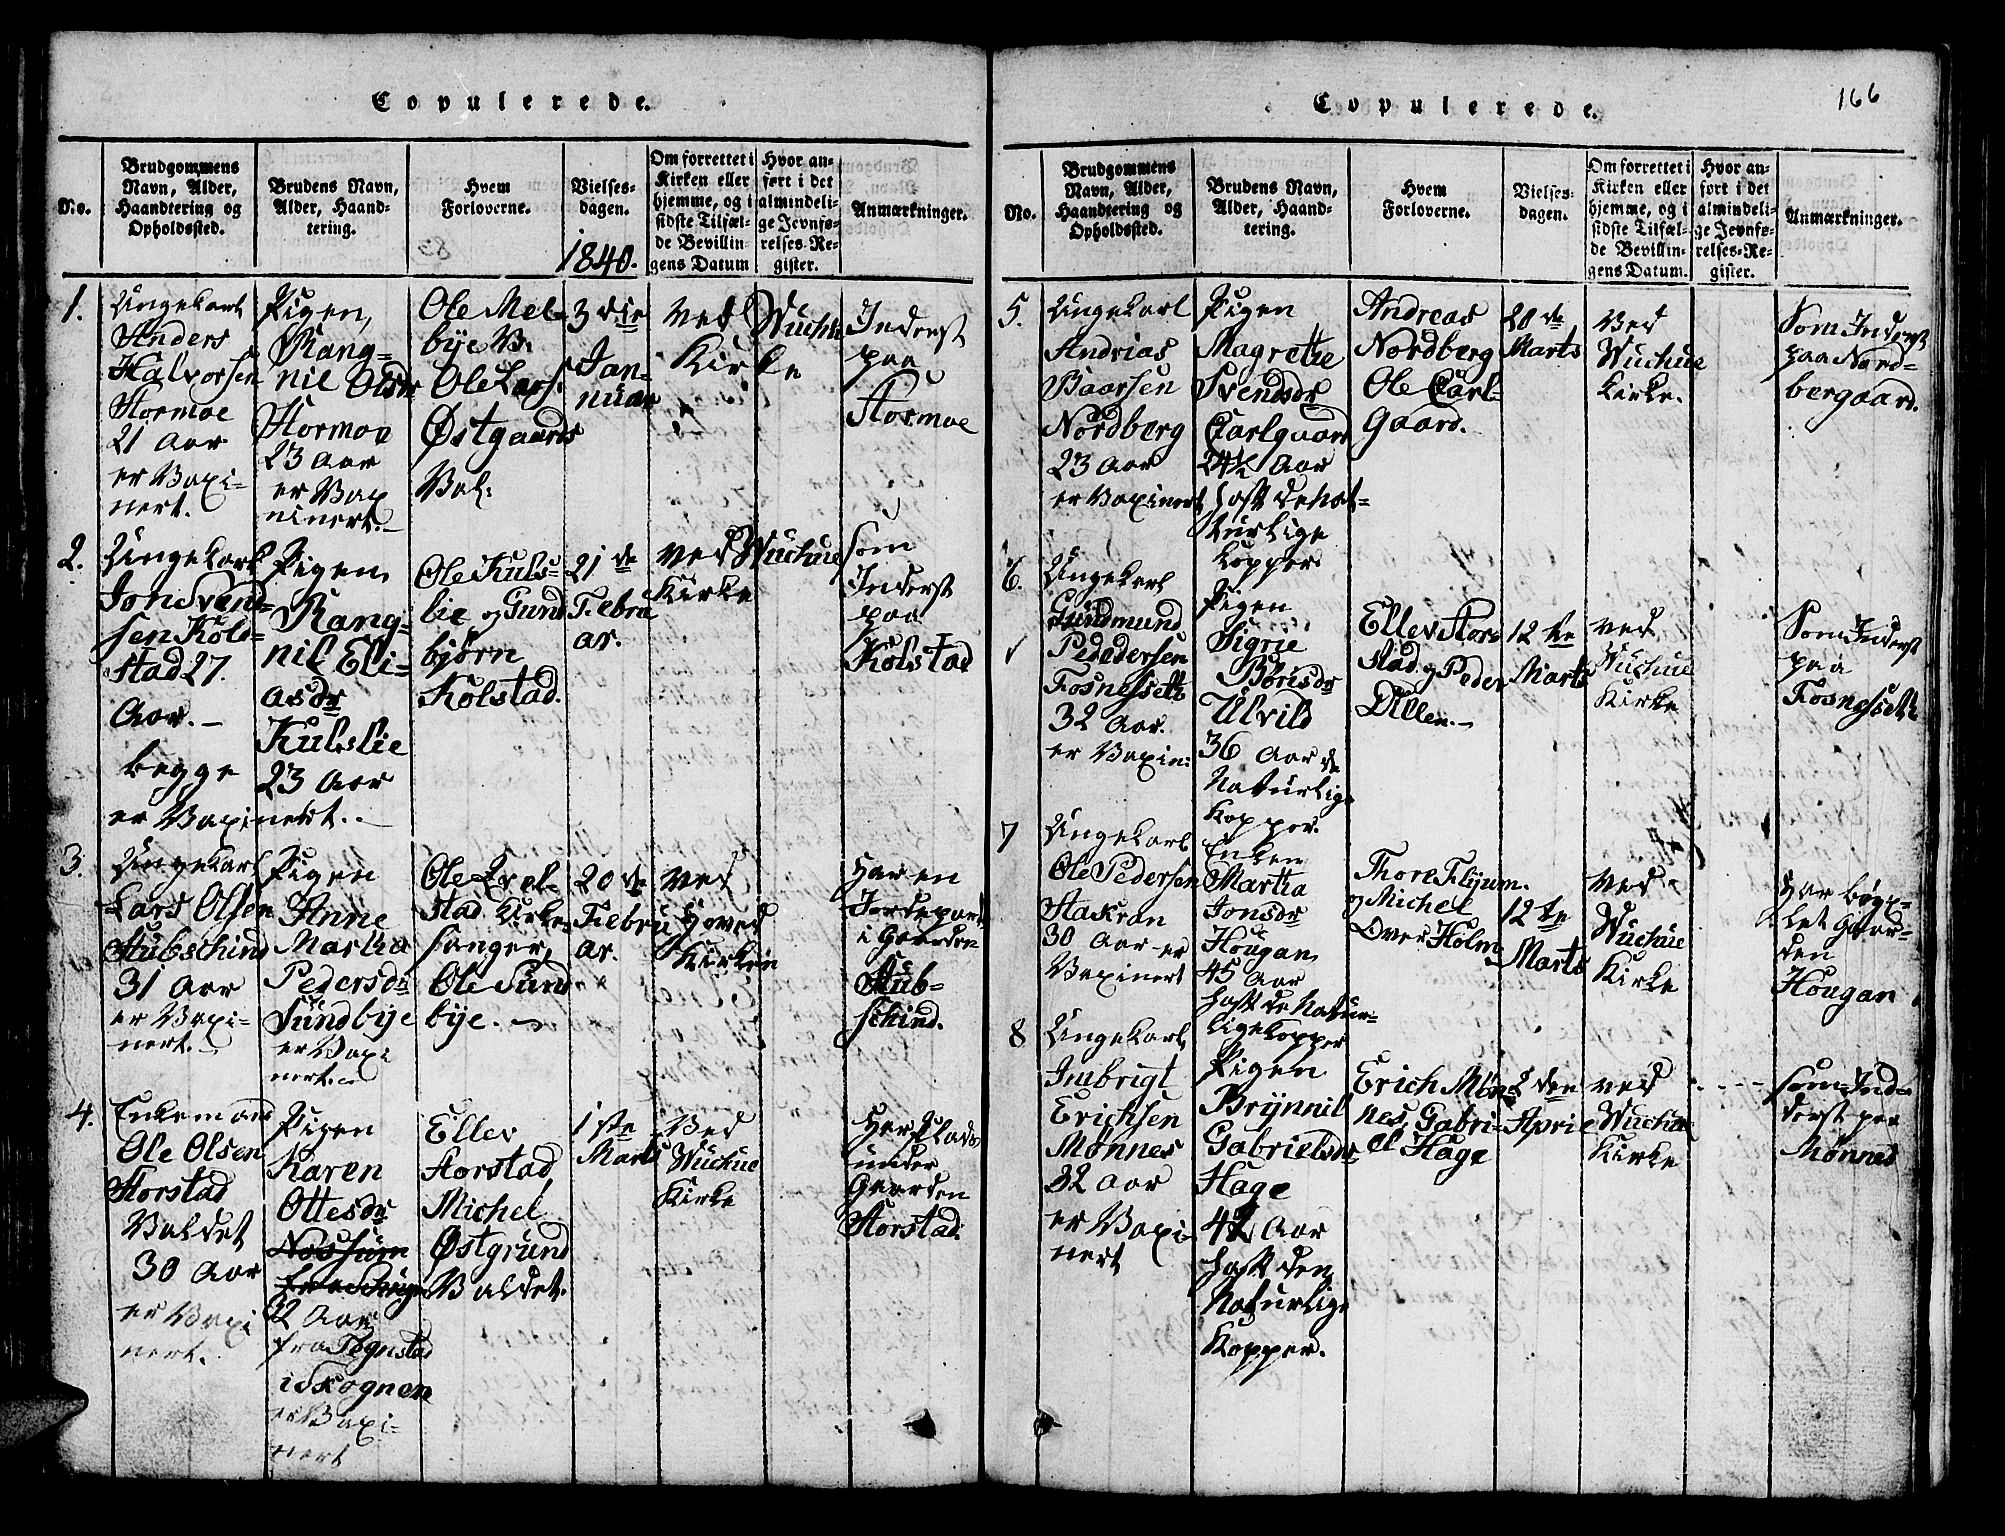 Copulerede.
No.
Brudgommens
Navn, Alder,
Haandtering og
Opholdssted.
Brudens Navn,
Alder, Haand-
tering.
Hvem
Forloverne.
Vielses-
dagen.
1840.
Om forrettet i
Kirken eller
hjemme, og i
sidste Tilfæl-
de Bevillin-
gens Datum
Hvor an-
ført i det
almindeli-
ge Jevnfø-
relses-Re-
gister.
Anmærkninger.
1.
Ungekarl
Anders
Halvorsen
Stormoe
21 Aar
er Vaxi-
nert.
Pigen,
Rang-
nil Olsdr
Stormoe
23 Aar
er Vax
ninert.
Ole Mel-
bye V:
Ole Lars:
Østgaards
Val:
3 die
Jan-
nuar
ved Wuchu
Kirke
Inderst
paa
Stormoe
2.
Ungekarl
Jon Svend-
sen Kols-
stad 27.
Aar. –
begge
er Vaxinert. –
Pigen
Rang-
nil Eli-
asdr
Kulslie
23 Aar
Ole Kuls-
lie og Gund
bjørn
Kolstad.
21 de
Febru
ar.
ved Wuchue
Kirke
som
Inderst
paa
Kolstad
3.
Ungekarl
Lars Olsen
Stubschind
31 Aar
er Vaxi-
nert. –
Pigen
Anne
Martha
Pedersdr
Sundbye
er Vaxi
nert. –
Ole Qvel-
stad Kirke-
sanger,
Ole Sund
bye. –
20 de
Febru
ar.
ved
Hoved
Kirken
Har en
Jordepart
i Gaarden
Stub-
schind.
4.
Enkemand
Ole Olsen
Storstad
Valdet
30 Aar
er Vaxi
nert.
Pigen
Karen
Ottesdr
Nossum
32 Aar
fra Tøgnstad
i Skognen
er Vaxi-
nert
Ellev
Storstad
Michel
Østgrund
Valdet.
1 ste
Marts
Ved
Wuchue
Kirke
Har Plads
under
Gaarden
Storstad.
Copulerede.
166
No.
Brudgommens
Navn, Alder,
Haandtering og
Opholdssted.
Brudens Navn,
Alder, Haand-
tering.
Hvem
Forloverne.
Vielses-
dagen.
Om forrettet i
Kirken eller
hjemme, og i
sidste Tilfæl-
de Bevillin-
gens Datum.
Hvor an-
ført i det
almindeli-
ge Jevnfø-
relses-Re-
gister.
Anmærkninger.
5.
Ungekarl
Andrias
Baarsen
Nordberg
23 Aar
er Vaxinert
Pigen
Magrethe
Svendsdr
Carlgaard
24½ Aar
haft de nat-
turlige
Kopper
Andreas
Nordberg
Ole Carl-
Gaard.
20 de
Marts
Ved
Wuchue
Kirke.
Som Inderst
paa Nord-
bergaard.
6.
Ungekarl
Gundmund
Pededersen
Fosnessetle
32 Aar.
er Vaxin:
Pigen
Sigrie
Borisdr
Ulvild
36 Aar de
Naturlige
Kopper.
Ellev Stor-
stad og Peder
Dillen. –
12 te
Marts
ved
Wuchue
Kirke
Som Inderst
paa
Fosnessetle
7
Ungekarl
Ole Pedersen
Stakran
30 Aar er
Vaxinert
Enken
Martha
Jonsdr
Hougan
45 Aar
haft de Natur-
lige Kopper
Thore Flyum.
og Michel
Over Holm
12 te
Marts
ved
Wuchue
Kirke
Har bøgs-
let Gaar-
den
Hougan
8
Ungekarl
Imbrigt
Erichsen
Monnes
32 Aar
er Vaxi
nert
Pigen
Brynnil
Gabrielsdr
Hage
42 Aar
haft den
Naturlige
Kopper.
Erich Mon-
nes, Gabri-
el Hage
2 den
Aprie
ved
Wuchue
Kirke
som Ind-
derst paa
Monnes